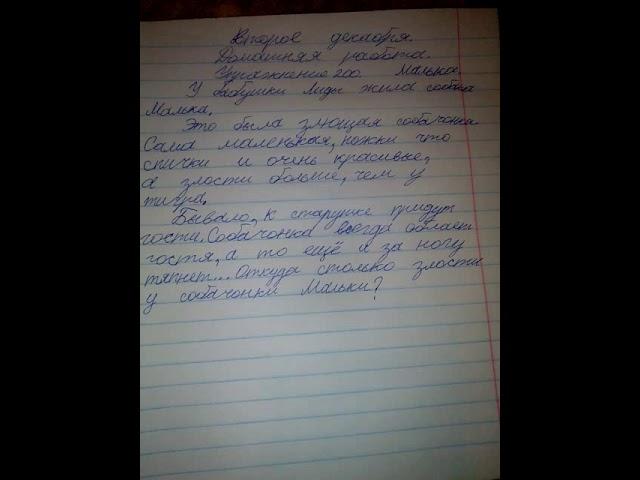 Второе декабря.
Домашняя работа.
Упражнение 200. Малька.
У бабушки Лиды жила собака
Малька.
Это была злющая собачонка
Сама маленькая, ножки что
спички и очень красивые,
а злости больше, чем у
тигра.
Бывало, к старушке придут
гости. Собачонка всегда облает
гостя, а то ещё и за ногу
тяпнет... Откуда столько злости
у собачонки Мальки?